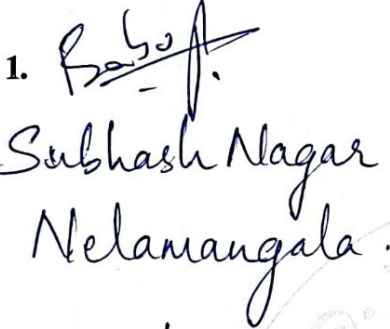 1. Babu A.
Subhash Nagar
Nelamangala.